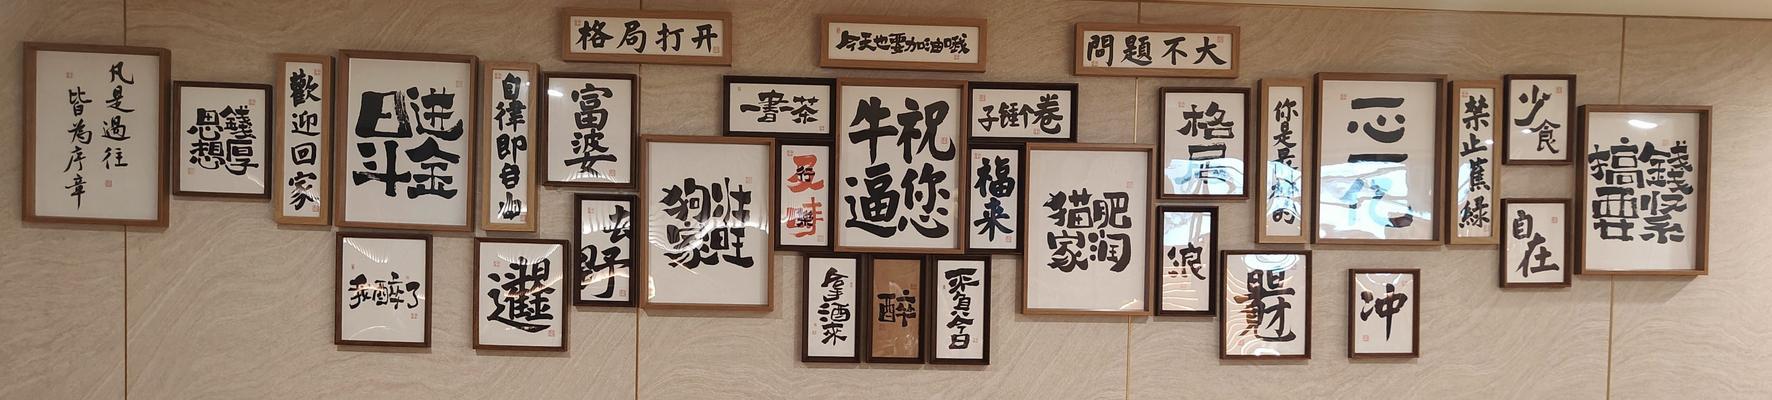 凡是過往
皆為序章
思想
錢厚
歡迎回家
日进
斗金
自律即自由
富婆
格局打开
我醉了
去野
狗壮
家旺
一書茶
祝您
牛逼
今天也要加油哦
卷个锤子
福来
拿酒來
醉
不負今日
猫肥
家润
問題不大
格局
浪
你是最棒的
禁止蕉綠
少食
自在
冲
搞錢
要緊